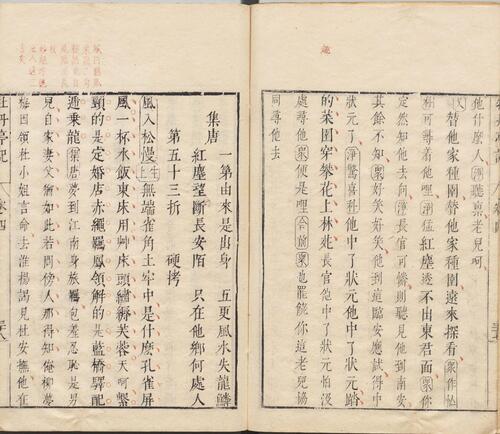 他什麽人淨聽稟老兒呵
又替他家種園替他家種園遠來探看衆作忙
和可尋着他淨猛紅塵透不出東君面衆你
定然知他去向淨長官可憐則聽見他到南安
其餘不知衆好笑好笑他到這臨安應試得中
狀元了淨驚喜科他中了狀元他中了狀元踏
的菜園穿攀花上林苑長官他中了狀元怕沒
處尋他衆便是哩合前衆也罷饒你這老兒協
同尋他去
集唐
一第由來是出身 五更風水失龍鱗
紅塵望斷長安陌 只在他鄉何處人
第五十三折 硬拷
風入松慢生上無端雀角土牢中是什麽孔雀屏
風一杯水飯東床用艸床頭繡褥芙蓉天呵繫
頸的是定婚店赤繩羈鳳領解的是藍橋驛配
遞乘龍集唐夢到江南身旅羈包羞忍恥是男
兒自家妻父猶如此若問傍人那得知俺柳夢
梅因領杜小姐言命去淮揚謁見杜安撫他在
牡丹亭記 卷四